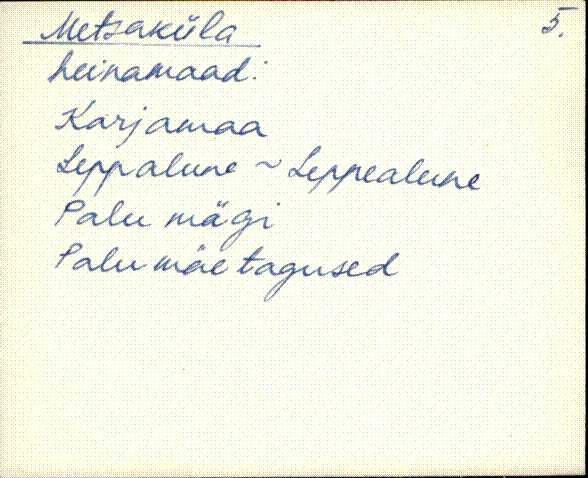 Metsaküla 5.
heinamaad:
Karjamaa
Leppalune ~ Leppealune
Palu mägi
Palu mäe tagused